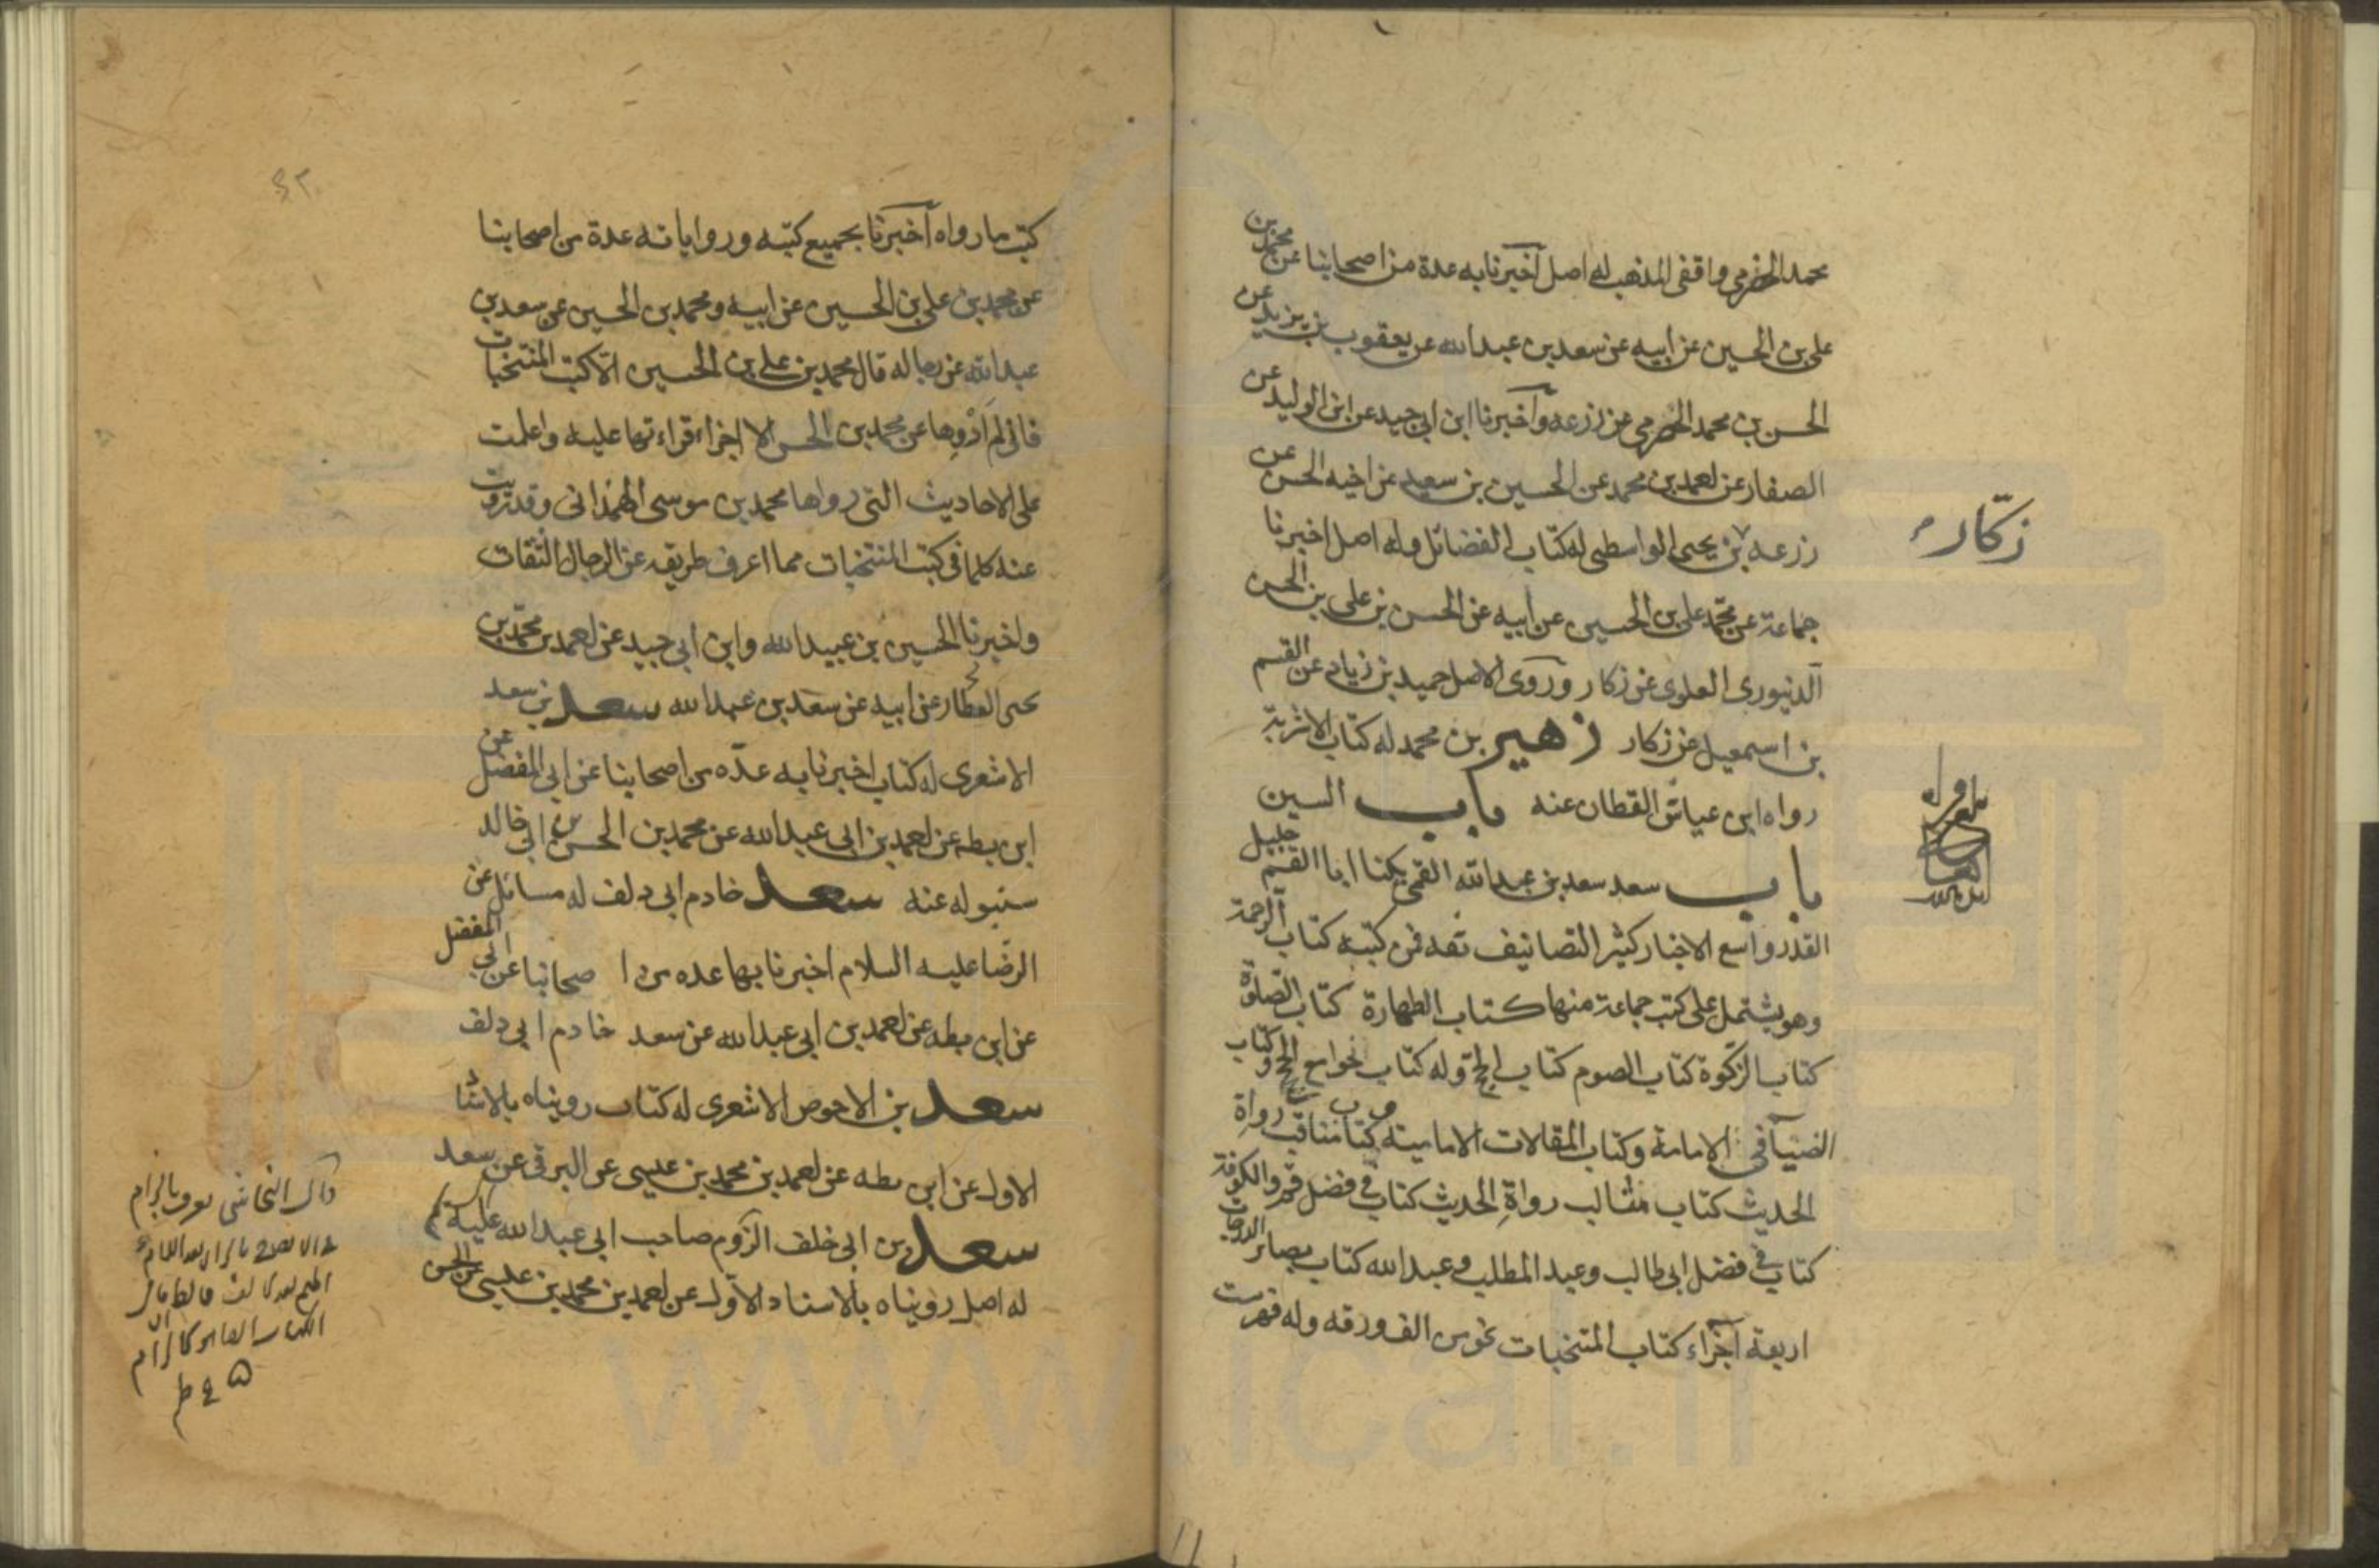 محمد الحضرمي واقفي المذهب له اصل اخبرنا به عدة من اصحابنا عن محمد بن
علي بن الحسين عن ابيه عن سعد بن عبد الله عن يعقوب بن يزيد عن
الحسن بن محمد الحضرمي عن زرعه واخبرنا ابن ابي جيد عن ابن الوليد عن
الصفار عن احمد بن محمد عن الحسين بن سعيد عن اخيه الحسن عن
زرعه بن يحيى الواسطي له كتاب الفضائل وله اصل اخبرنا
زكار
جماعة عن محمد علي بن الحسين عن ابيه عن الحسن بن علي بن الحسن
الدنيوري العلوي عن زكار وروى الاصل حميد بن زياد عن القسم
بن اسمعيل عن زكار زهير بن محمد له كتاب الاشربة
رواه ابن عياش القطان عنه باب السين
باب سعد سعد بن عبد الله القمي يكنا ابا القسم جليل
القدر واسع الاخبار كثير التصانيف ثقه فمن كتبه كتاب الرحمة
وهو يشتمل على كتب جماعة منها كتاب الطهارة كتاب الصلوة
كتاب الزكوة كتاب الصوم كتاب الحج وله كتاب جوامع الحج وكتاب
الضيا في الامامة وكتاب المقالات الامامية كتاب مناقب رواة
الحديث كتاب مثالب رواة الحديث كتاب في فضل قم والكوفة
كتاب في فضل ابي طالب وعبد المطلب وعبد الله كتاب بصائر الدرجات
اربعة اجزاء كتاب المنتخبات نحو من الف ورقه وله فهرست
٤٢
كتب ما رواه اخبرنا بجميع كتبه ورواياته عدة من اصحابنا
عن محمد بن علي بن الحسين عن ابيه ومحمد بن الحسين عن سعد بن
عبد الله عن رجاله قال محمد بن علي بن الحسين الا كتب المنتخبات
فاني لم اروها عن محمد بن الحسن الا اجزاء قراءتها عليه واعلمت
على الاحاديث التي رواها محمد بن موسى الهمداني وقد رويت
عنه كلما في كتب المنتخبات مما اعرف طريقه عن الرجال الثقات
واخبرنا الحسين بن عبيد الله وابن ابي جيد عن احمد بن محمد بن
يحيى العطار عن ابيه عن سعد بن عبد الله سعد بن سعد
الاشعري له كتاب اخبرنا به عده من اصحابنا عن ابي المفضل عن
ابن بطه عن احمد بن ابي عبد الله عن محمد بن الحسن ابي خالد
سنبوله عنه سعد خادم ابي دلف له مسائل عن
الرضا عليه السلام اخبرنا بها عده من اصحابنا عن ابي المفضل
عن ابن بطه عن احمد بن ابي عبد الله عن سعد خادم ابي دلف
سعد بن الاحوص الاشعري له كتاب رويناه بالاسناد
الاول عن ابن بطه عن احمد بن محمد بن عيسى عن البرقي عن سعد
سعد بن ابي خلف الزوم صاحب ابي عبد الله عليه
له اصل رويناه بالاسناد الاول عن احمد بن محمد بن عيسى عن الحسن
قال النجاشي يعرف بالزام
www.ical.ir